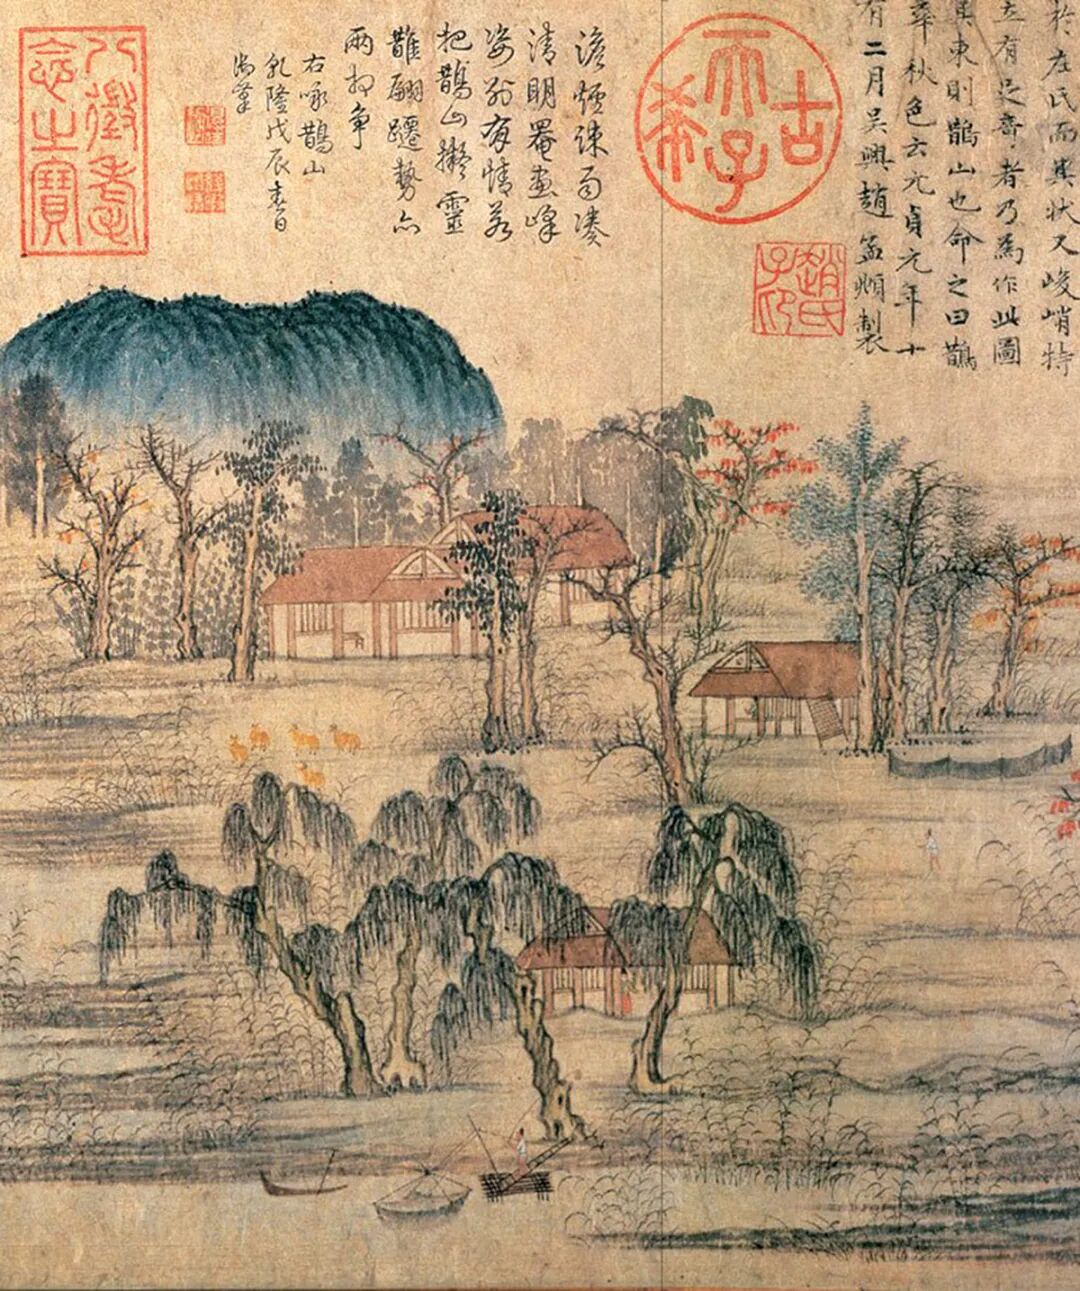 於左氏而其狀又峻峭特
立有足奇者乃為作此圖
其東則鵲山也命之曰鵲
華秋色云元貞元年十
有二月吳興趙孟頫製
趙氏子昂
古希天子
澹煙疎雨湊
清明罨畫峰
姿別有情若
把鵲山擬靈
鵲翩躚勢亦
兩相爭
右詠鵲山
乾隆戊辰春日
御筆
八徵耄念之寶